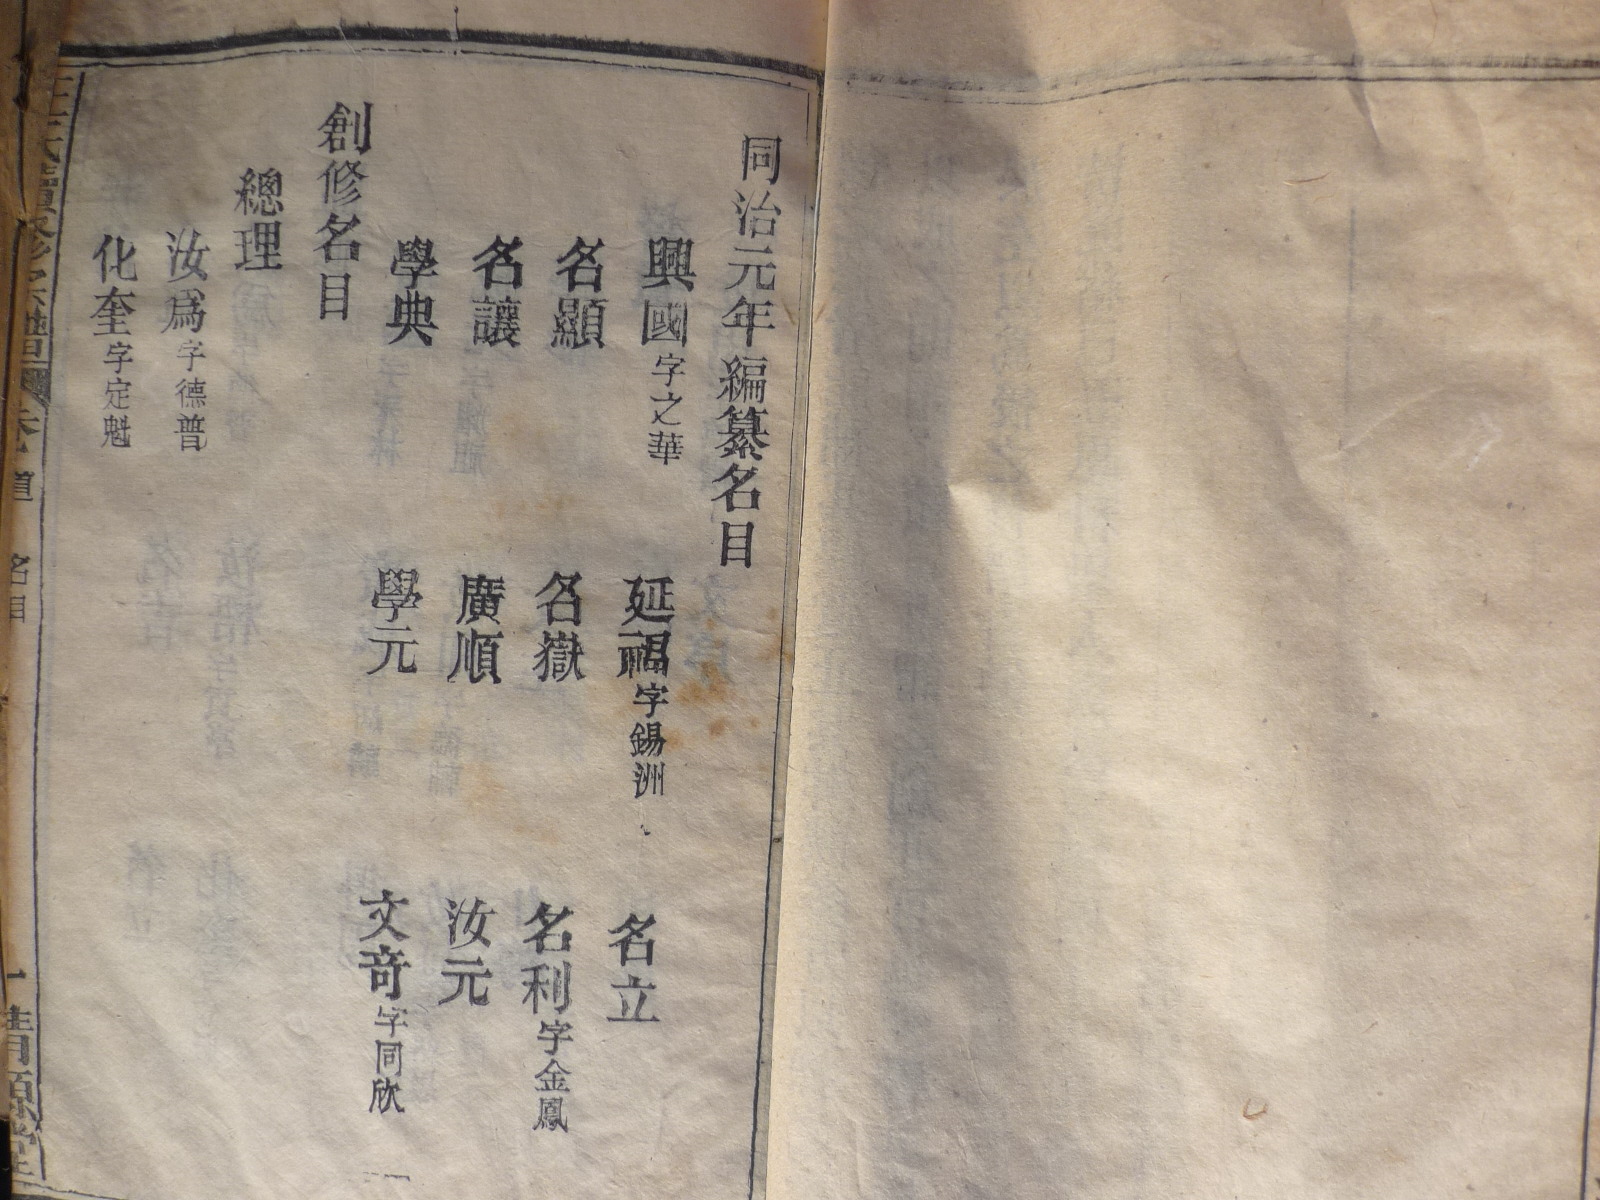 同治元年編纂名目
興國字之華 延福字錫洲 名立
名顯 名嶽 名利字金鳳
名讓 廣順 汝元
學典 學元 文竒字同欣
創修名目
總理
汝為字德普
化奎字定魁
名目
一